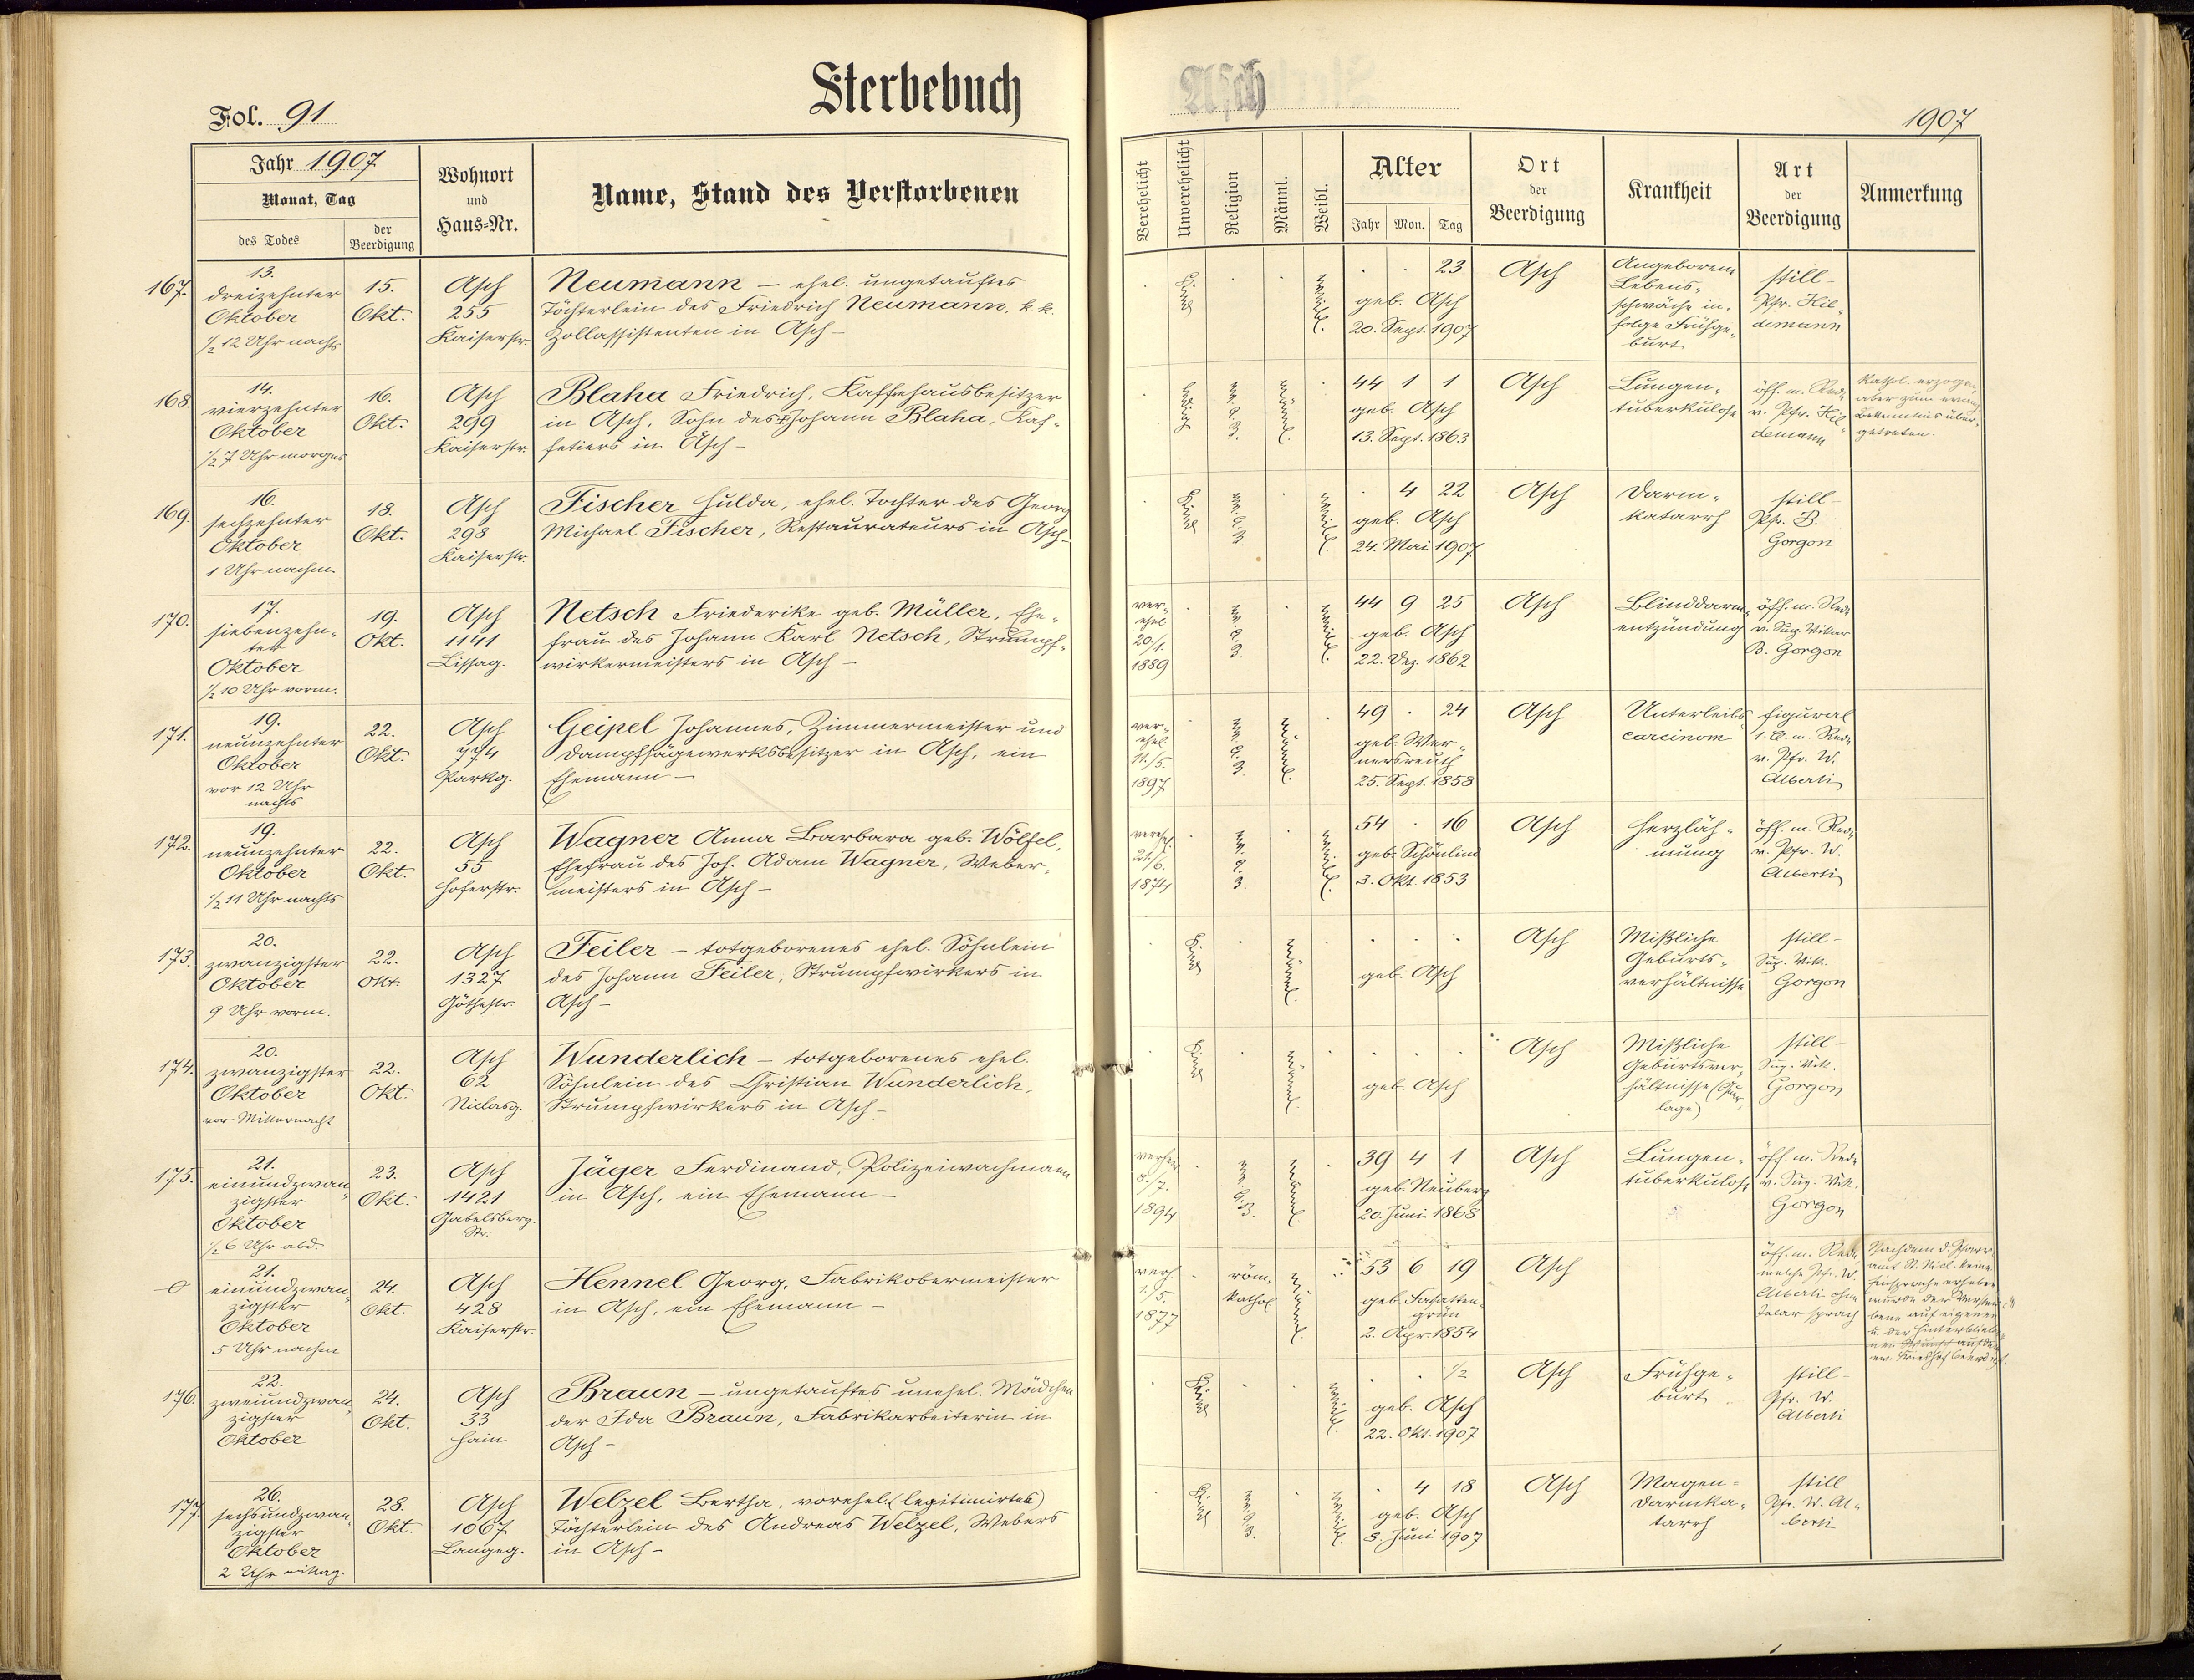 Sterbebuch
Asch
Fol. 91
1907
Jahr 1907
Monat, Tag
des Todes
der Beerdigung
Wohnort und Haus-Nr.
Name, Stand des Verstorbenen
Verehelicht
Unverehelicht
Religion
Männl.
Weibl.
Alter
Jahr Mon. Tag
Ort der Beerdigung
Krankheit
Art der Beerdigung
Anmerkung
167.
13.
dreizehnter
Oktober
½ 12 Uhr nachts
15.
Okt.
Asch
255
Kaiserstr.
Neumann – ehel. ungetauftes
Töchterlein des Friedrich Neumann, k. k.
Zollassistenten in Asch –
Kind
weibl.
23
geb. Asch
20. Sept. 1907
Asch
Angeborene
Lebens-
schwäche in-
folge Frühge-
burt
still –
Pfr. Hil-
demann
168.
14.
vierzehnter
Oktober
½ 7 Uhr morgens
16.
Okt.
Asch
299
Kaiserstr.
Blaha Friedrich, Kaffehausbesitzer
in Asch, Sohn des † Johann Blaha, Kaf-
fetiers in Asch –
ledig
ev. A. B.
männl.
44 1 1
geb. Asch
13. Sept. 1863
Asch
Lungen-
tuberkulose
öff. m. Rede
v. Pfr. Hil-
demann
Kathol. erzogen,
aber zum evang.
Bekenntnis über-
getreten.
169.
16.
sechzehnter
Oktober
1 Uhr nachm.
18.
Okt.
Asch
298
Kaiserstr.
Fischer Hulda, ehel. Tochter des Georg
Michael Fischer, Restaurateurs in Asch –
Kind
ev. A. B.
weibl.
4 22
geb. Asch
24. Mai 1907
Asch
Darm-
katarrh
still –
Pfr. B.
Gorgon
170.
17.
siebenzehn-
ter
Oktober
½ 10 Uhr vorm.
19.
Okt.
Asch
1141
Lissag.
Netsch Friederike geb. Müller, Ehe-
frau des Johann Karl Netsch, Strumpf-
wirkermeisters in Asch –
ver-
ehel
20/1.
1889
ev. A. B.
weibl.
44 9 25
geb. Asch
22. Dez. 1862
Asch
Blinddarm-
entzündung
öff. m. Rede
v. Sup. Vikar
B. Gorgon
171.
19.
neunzehnter
Oktober
vor 12 Uhr
nachts
22.
Okt.
Asch
774
Parkg.
Geipel Johannes, Zimmermeister und
Dampfsägewerksbesitzer in Asch, ein
Ehemann –
ver-
ehel.
11./5.
1897
ev. A. B.
männl.
49 · 24
geb. Wer-
nersreuth
25. Sept. 1858
Asch
Unterleibs
carcinom
figural
1. Cl. m. Rede
v. Pfr. W.
Alberti
172.
19.
neunzehnter
Oktober
½ 11 Uhr nachts
22.
Okt.
Asch
55
Hoferstr.
Wagner Anna Barbara geb. Wölfel,
Ehefrau des Joh. Adam Wagner, Weber-
meisters in Asch –
verehel.
/6.
1874
ev. A. B.
weibl.
54 · 16
geb. Schönlind
3. Okt. 1853
Asch
Herzläh-
mung
öff. m. Rede
v. Pfr. W.
Alberti
173.
20.
zwanzigster
Oktober
9 Uhr vorm.
22.
Okt.
Asch
1327
Göthestr.
Feiler – totgeborenes ehel. Söhnlein
des Johann Feiler, Strumpfwirkers in
Asch –
Kind
männl.
geb. Asch
Asch
Mißliche
Geburts-
verhältnisse
still –
Sup. Vik.
Gorgon
174.
20.
zwanzigster
Oktober
vor Mitternacht
22.
Okt.
Asch
62
Niclasg.
Wunderlich – totgeborenes ehel.
Söhnlein des Christian Wunderlich,
Strumpfwirkers in Asch –
Kind
männl.
geb. Asch
Asch
Mißliche
Geburtsver-
hältnisse (Quer-
lage)
still –
Sup. Vik.
Gorgon
175.
21.
einundzwan-
zigster
Oktober
½ 6 Uhr abd.
23.
Okt.
Asch
1421
Gabelsberg.
Str.
Jäger Ferdinand, Polizeiwachmann
in Asch, ein Ehemann –
8./7.
1894
ev. A. B.
männl.
39 4 1
geb. Neuberg
20. Juni 1868
Asch
Lungen-
tuberkulose
öff. m. Rede
v. Sup. Vik.
Gorgon
–0
21.
einundzwan-
zigster
Oktober
5 Uhr nachm
24.
Okt.
Asch
428
Kaiserstr.
Hennel Georg, Fabrikobermeister
in Asch, ein Ehemann –
vereh.
1./5.
1877
röm.
kathol.
männl.
53 6 19
geb.
grün
2. Apr. 1854
Asch
öff. m. Rede
welche Pfr. W.
Alberti ohne
Talar sprach
Nachdem d. Pfarr-
amt St. Nicl. keine
Einsprache erhoben
wurde der Verstor-
bene auf eigenen
u. der Hinterbliebe-
nen Wunsch auf dem
ev. Friedhof beerdigt.
176.
22.
zweiundzwan-
zigster
Oktober
24.
Okt.
Asch
33
Hain
Braun – ungetauftes unehel. Mädchen
der Ida Braun, Fabrikarbeiterin in
Asch –
Kind
weibl.
½
geb. Asch
22. Okt. 1907
Asch
Frühge-
burt
still –
Pfr. W.
Alberti
177.
26.
sechsundzwan-
zigster
Oktober
2 Uhr mittag.
28.
Okt.
Asch
1067
Langeg.
Welzel Bertha, vorehel. (legitimirtes)
Töchterlein des Andreas Welzel, Webers
in Asch –
Kind
ev. A. B.
weibl.
4 18
geb. Asch
8. Juni 1907
Asch
Magen-
darmka-
tarrh
still
Pfr. W. Al-
berti